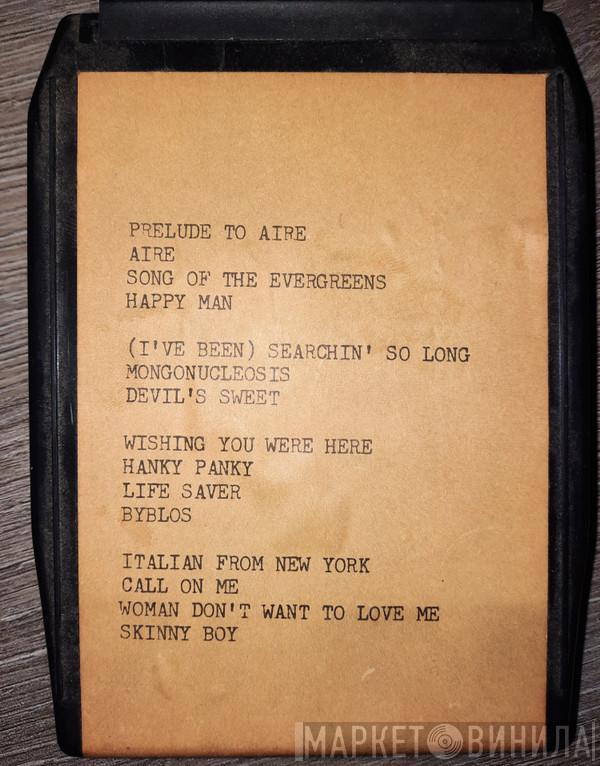 PRELUDE TO AIRE
AIRE
SONG OF THE EVERGREENS
HAPPY MAN
(I'VE BEEN) SEARCHIN' SO LONG
MONGONUCLEOSIS
DEVIL'S SWEET
WISHING YOU WERE HERE
HANKY PANKY
LIFE SAVER
BYBLOS
ITALIAN FROM NEW YORK
CALL ON ME
WOMAN DON'T WANT TO LOVE ME
SKINNY BOY
МАРКЕТ ВИНИЛА